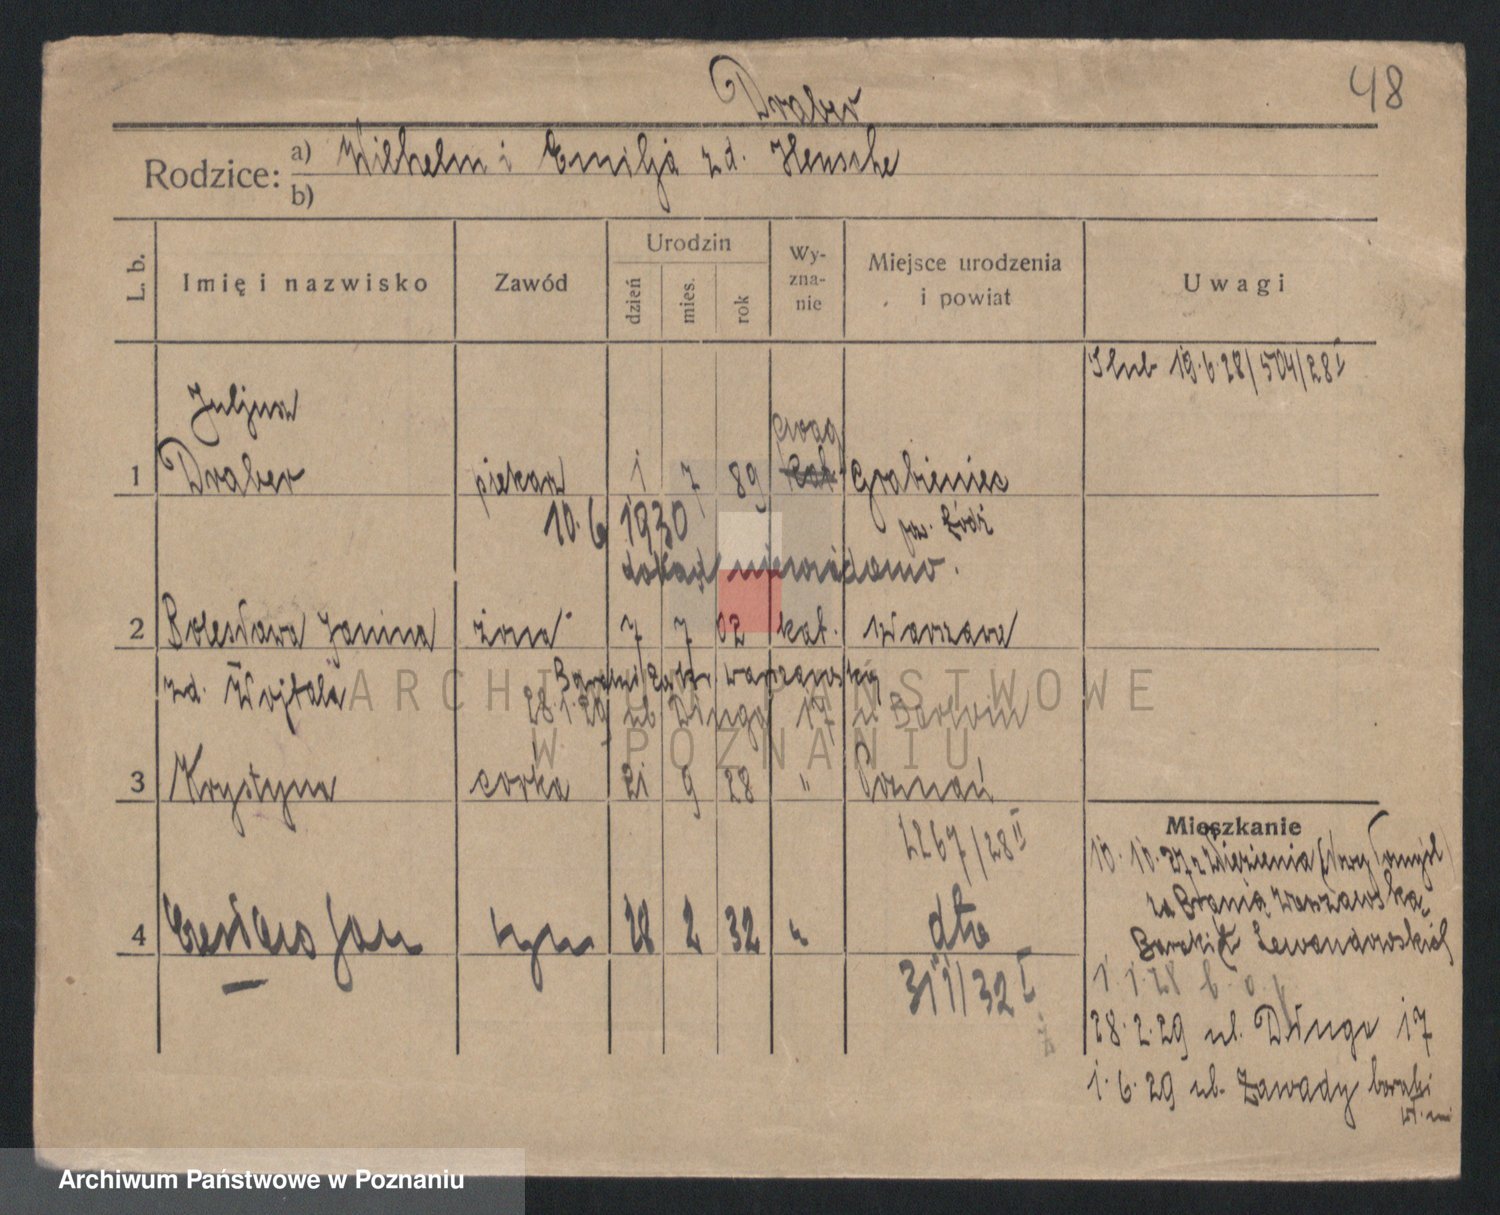 48
Draber
Rodzice: a) Wilhelm i Emilja zd. Hensche
b)
L. b. Imię i nazwisko Zawód Urodzin dzień mies. rok Wy-zna-nie Miejsce urodzenia i powiat Uwagi
Ślub 19.6.28/504/28 I
Juljan
ewag
1 Draber piekarz 1 7 89 kat. Grabieniec
10.6 1930 pow. Łódź
dokąd niewiadomo.
2 Bolesława Janina żona 7 7 02 kat. Warszawa
zd. Wojtala warszawską
28.1.29 ul Długa 17 u Barłoin
3 Krystyna córka 21 9 28 " Poznań
2267/28 II
Mieszkanie
10. 10. 27 z Więzienia
za Bramą Warszawską
Baraki Lewandowskich
4 Czesław Jan syn 28 2 32 " dto
311/32 I
1. 1.28
28.2.29 ul. Długa 17
1.6.29 ul. Zawady baraki
ARCHIWUM PAŃSTWOWE
W POZNANIU
Archiwum Państwowe w Poznaniu